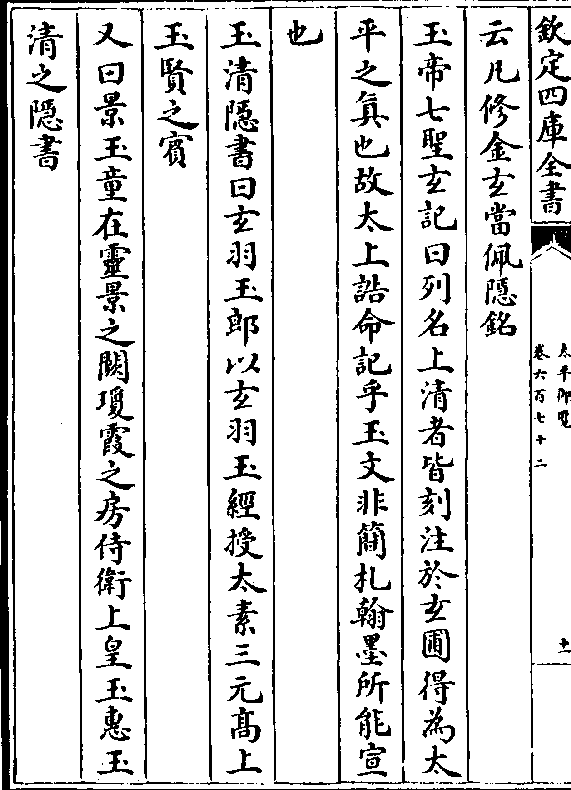 欽定四庫全書
太平御覽
卷六百七十二
十一
云凡修金玄當佩隱銘
玉帝七聖玄記曰列名上清者皆刻注於玄圃得為太
平之真也故太上誥命記乎玉文非簡札翰墨所能宣
也
玉清隱書曰玄羽玉郎以玄羽玉經授太素三元髙上
玉賢之賓
又曰景玉童在靈景之闕瓊霞之房侍衛上皇玉惠玉
清之隱書